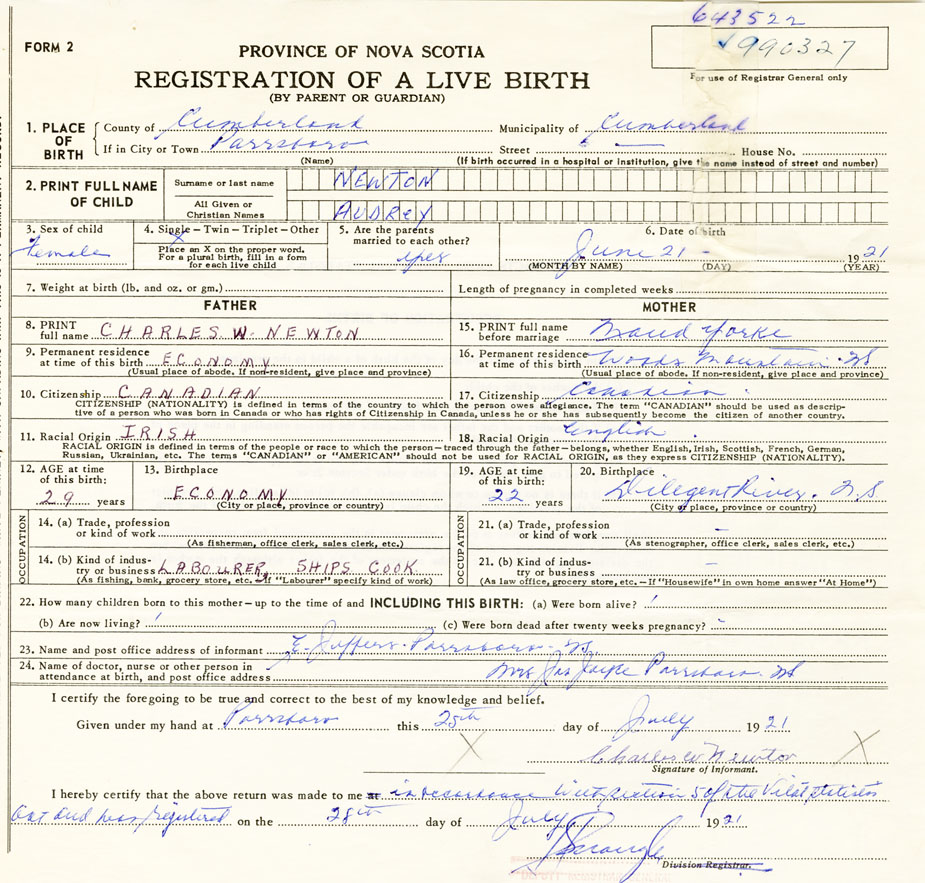 643522
FORM 2
990327
PROVINCE OF NOVA SCOTIA
REGISTRATION OF A LIVE BIRTH
(BY PARENT OR GUARDIAN)
For use of Registrar General only
1. PLACE OF BIRTH County of Cumberland Municipality of Cumberland
If in City or Town Parrsboro Street — House No.
(Name) (If birth occurred in a hospital or institution, give the name instead of street and number)
2. PRINT FULL NAME OF CHILD Surname or last name NEWTON
All Given or Christian Names AUDREY
3. Sex of child female
4. Single – Twin – Triplet – Other X
Place an X on the proper word. For a plural birth, fill in a form for each live child
5. Are the parents married to each other? yes
6. Date of birth June 21 - 1921
(MONTH BY NAME) (DAY) (YEAR)
7. Weight at birth (lb. and oz. or gm.) Length of pregnancy in completed weeks
FATHER MOTHER
8. PRINT full name CHARLES. W. NEWTON
15. PRINT full name before marriage Maud Yorke
9. Permanent residence at time of this birth ECONOMY
(Usual place of abode. If non-resident, give place and province)
16. Permanent residence at time of this birth Mountain. NS
(Usual place of abode. If non-resident, give place and province)
10. Citizenship CANADIAN 17. Citizenship Canadian
CITIZENSHIP (NATIONALITY) is defined in terms of the country to which the person owes allegiance. The term "CANADIAN" should be used as descrip-
tive of a person who was born in Canada or who has rights of Citizenship in Canada, unless he or she has subsequently become the citizen of another country.
11. Racial Origin IRISH 18. Racial Origin English
RACIAL ORIGIN is defined in terms of the people or race to which the person – traced through the father – belongs, whether English, Irish, Scottish, French, German,
Russian, Ukrainian, etc. The terms "CANADIAN" or "AMERICAN" should not be used for RACIAL ORIGIN, as they express CITIZENSHIP (NATIONALITY).
12. AGE at time of this birth: 29 years
13. Birthplace ECONOMY
(City or place, province or country)
19. AGE at time of this birth: 22 years
20. Birthplace Diligent River. N.S
(City or place, province or country)
OCCUPATION
14. (a) Trade, profession or kind of work
(As fisherman, office clerk, sales clerk, etc.)
14. (b) Kind of indus-
try or business LABOURER, SHIPS COOK
(As fishing, bank, grocery store, etc. If "Labourer" specify kind of work)
OCCUPATION
21. (a) Trade, profession or kind of work –
(As stenographer, office clerk, sales clerk, etc.)
21. (b) Kind of indus-
try or business –
(As law office, grocery store, etc. – If "Housewife" in own home answer "At Home")
22. How many children born to this mother – up to the time of and INCLUDING THIS BIRTH: (a) Were born alive? 1
(b) Are now living? 1 (c) Were born dead after twenty weeks pregnancy? -
23. Name and post office address of informant E. Jeffers. Parrsboro. NS
24. Name of doctor, nurse or other person in
attendance at birth, and post office address Mrs Jas Yorke Parrsboro. NS
I certify the foregoing to be true and correct to the best of my knowledge and belief.
Given under my hand at Parrsboro this 25th day of July 1921
X Charles W Newton X
Signature of Informant.
I hereby certify that the above return was made to me in accordance with section 5 of the Vital Statistics
Act and was registered on the 28th day of July 1921
Division Registrar.